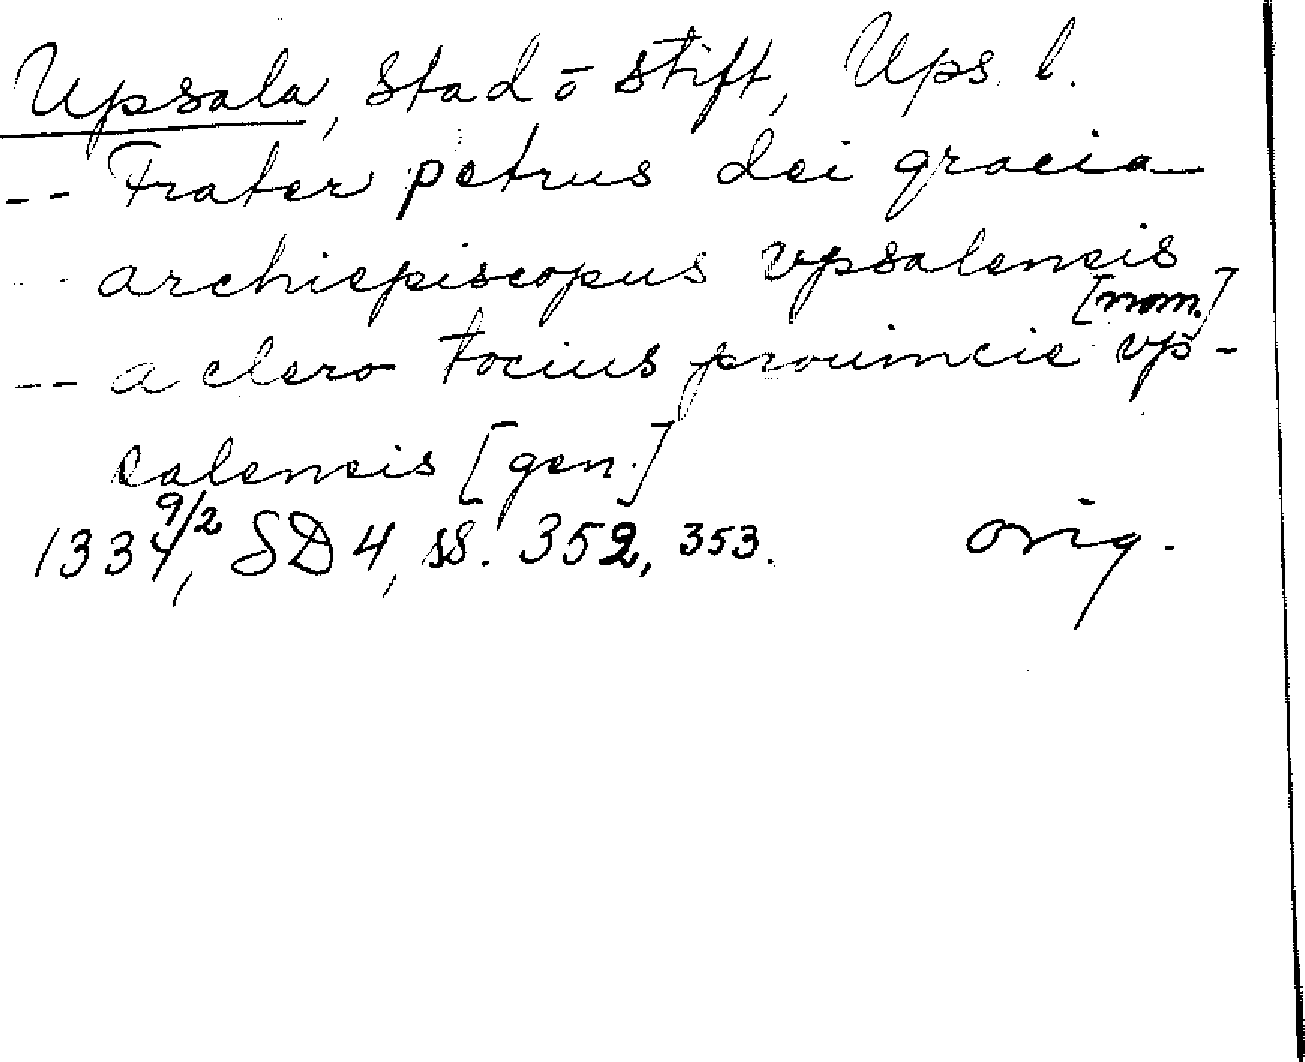 Upsala, Stad o stift, Ups. l.
-- Frater petrus dei gracia
-- archiepiscopus vpsalensis
[nom.]
-- a clero tocius prouincie vp-
salensis [gen.]
1334 9/2, SD 4, ss. 352, 353. orig.